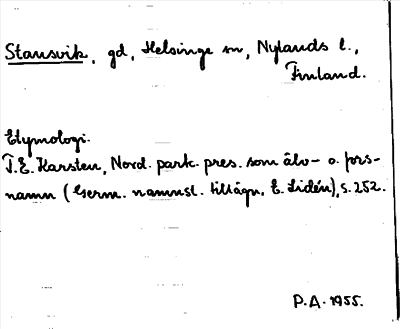 Stansvik, gd, Helsinge sn, Nylands l.,
Finland.
Etymologi.
T.E. Karsten, Nord. park. pres. som älv- o. fors-
namn (Germ. namnst. tillägn. E. Lidén), s. 252.
P.A. 1955.